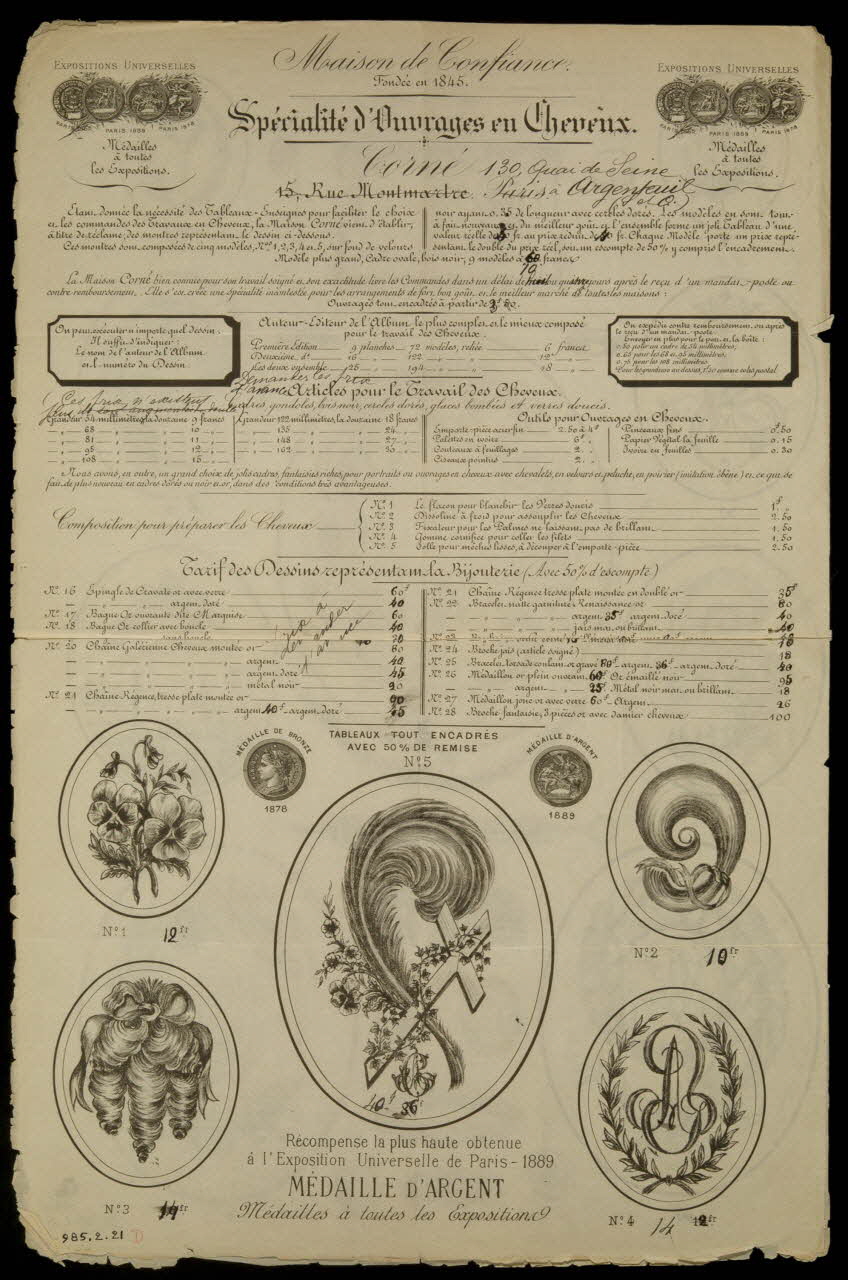 Maison de Confiance.
Fondée en 1845.
Spécialité d'Ouvrages en Cheveux.
EXPOSITIONS UNIVERSELLES
PARIS 1889 PARIS 1878
Médailles
à toutes
les Expositions.
EXPOSITIONS UNIVERSELLES
PARIS 1889 PARIS 1878
Médailles
à toutes
les Expositions.
Corné 130, Quai de Seine
15, Rue Montmartre, Paris à Argenteuil
(S et O.)
Etant donnée la nécessité des Tableaux-Enseignes pour faciliter le choix
et les commandes des Travaux en Cheveux, la Maison Corné vient d'établir,
à titre de réclame, des montres représentant le dessin ci-dessous.
Ces montres sont composées de cinq modèles, Nos 1, 2, 3, 4 et 5, sur fond de velours
noir ayant 0.35 de longueur avec cercles dorés. Les modèles en sont tout-
à fait nouveaux et du meilleur goût et l'ensemble forme un joli Tableau d'une
valeur réelle de fr. au prix réduit de fr. Chaque Modèle porte un prix repré-
sentant le double du prix réel, soit un escompte de 50% y compris l'encadrement.
Modèle plus grand, Cadre ovale, bois noir, 9 modèles à francs
70
La Maison Corné bien connue pour son travail soigné et son exactitude livre les Commandes dans un délai de ou jours après le reçu d'un mandat-poste ou
contre remboursement. Elle s'est créée une spécialité incontestée pour les arrangements de fort bon goût et le meilleur marché de toutes les maisons:
Ouvrages tout encadrés à partir de 50.
On peut exécuter n'importe quel dessin.
Il suffit d'indiquer:
Le nom de l'auteur de l'Album
et le numéro du Dessin
Auteur-Editeur de l'Album le plus complet et le mieux composé
pour le travail des Cheveux.
Première Edition 9 planches 72 modèles, reliée 6 francs
Deuxième d° 16 122 12
Les deux ensemble 25 194 18
On expédie contre remboursement ou après
le reçu d'un mandat-poste.
Envoyer en plus pour le port et la boîte:
0.50 pour un cadre de 54 millimètres;
0.65 pour les 68 et 95 millimètres;
0.75 pour les 108 millimètres
Pour les grandeurs au dessus, 1.50 comme colis postal
Demander les prix
d'avance
Articles pour le Travail des Cheveux.
Ces prix n'existent
Cadres gondolés, bois noir, cercles dorés, glaces bombées et verres doucis.
Grandeur 54 millimètres, la douzaine 9 francs
68 10
81 11
95 12
108 15
Grandeur 122 millimètres, la douzaine 18 francs
135 24
148 27
162 30
Outils pour Ouvrages en Cheveux.
Emporte-pièce acier fin 2.50 à 4f
Palettes en ivoire 6f
Couteaux à feuillages 2
Ciseaux pointus 2
Pinceaux fins 0f50
Papier Végétal la feuille 0.15
Ivoire en feuilles 0.30
Nous avons, en outre, un grand choix de jolis cadres, fantaisies riches, pour portraits ou ouvrages en cheveux avec chevalets, en velours et peluche, en poirier (imitation ébène) et ce qui se
fait de plus nouveau en cadres dorés ou noir et or, dans des conditions très avantageuses.
Composition pour préparer les Cheveux
N° 1 Le flacon pour blanchir les Verres doucis 1f
N° 2 Bissoline à froid pour assouplir les Cheveux 2.50
N° 3 Fixateur pour les Palmes ne laissant pas de brillant 1.50
N° 4 Gomme cornifice pour coller les filets 1.50
N° 5 Colle pour mèches lisses, à découper à l'emporte-pièce 2.50
Tarif des Dessins représentant la Bijouterie (Avec 50% d'escompte)
N° 16 Epingle de Cravate or avec verre 60f
argent doré 40
N° 17 Bague Or ouvrante dite Marquise 60
N° 18 Bague Or collier avec boucle 40
sans boucle 30
N° 20 Chaîne Galérienne Cheveux monture or 80
argent 40
argent doré 45
métal noir 20
N° 21 Chaîne Régence, tresse plate monture or 90
argent 40f argent doré 45
Prix à
demander
d'avance
N° 21 Chaîne Régence tresse plate montée en doublé or 35f
N° 22 Bracelet natte garniture Renaissance or 80
argent 35f argent doré 40
jais mat ou brillant 40
N° 24 Broche jais (article soigné) 18
N° 25 Bracelet torsade coulant or gravé 80f argent 36f argent doré 40
N° 26 Médaillon or plein ouvrant 60f Or émaillé noir 95
argent 25f Métal noir mat ou brillant 18
N° 27 Médaillon jonc or avec verre 60f Argent 26
N° 28 Broche fantaisie, 3 pièces or avec damier cheveux 100
TABLEAUX TOUT ENCADRÉS
AVEC 50% DE REMISE
MÉDAILLE DE BRONZE
1878
MÉDAILLE D'ARGENT
1889
N° 5
N° 1 12fr
N° 2 10fr
40f 36f
N° 3 14fr
N° 4 14 12fr
Récompense la plus haute obtenue
à l'Exposition Universelle de Paris - 1889
MÉDAILLE D'ARGENT
Médailles à toutes les Expositions
985.2.21 D